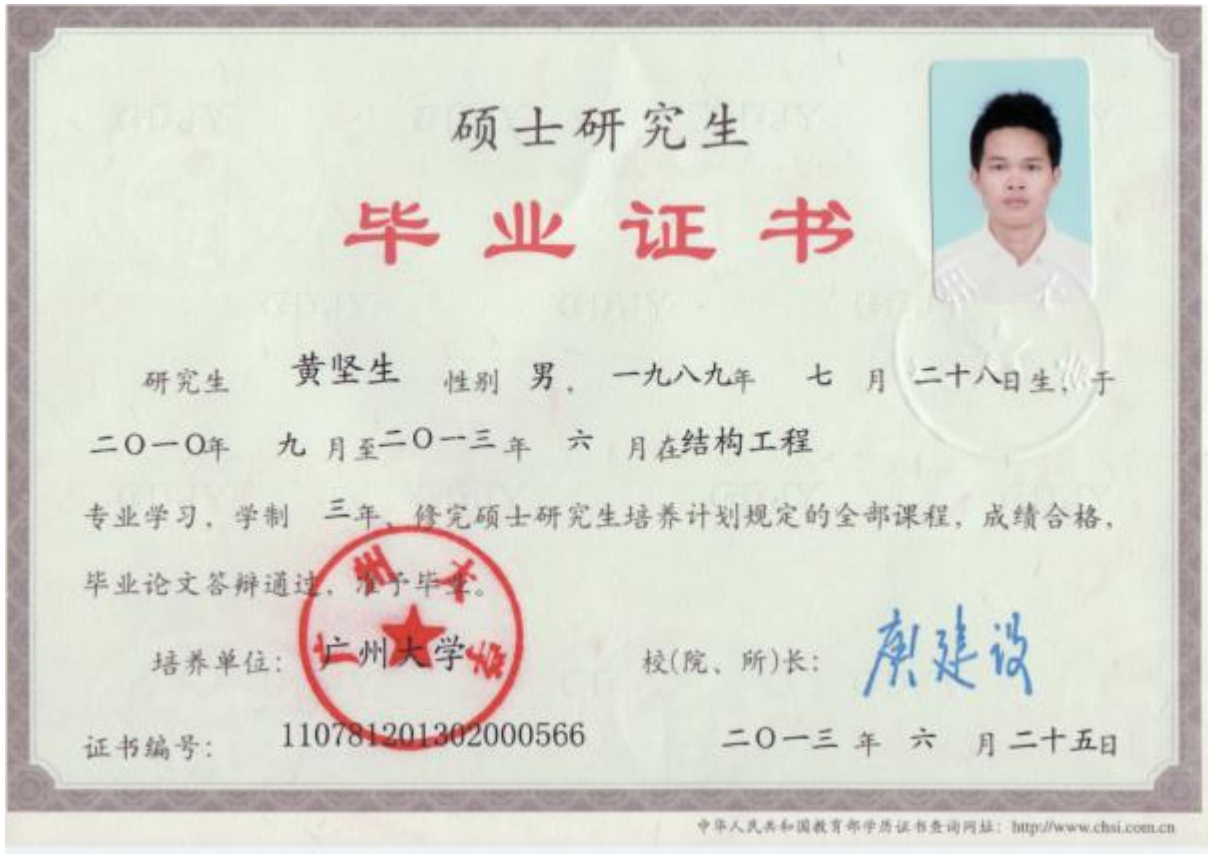 硕士研究生
毕业证书
研究生 黄坚生 性别 男, 一九八九年 七 月 二十八日生, 于
二〇一〇年 九 月至二〇一三年 六 月在结构工程
专业学习, 学制 三年, 修完硕士研究生培养计划规定的全部课程, 成绩合格,
毕业论文答辩通过, 准予毕业。
培养单位: 广州大学 校(院、所)长: 庾建设
广州大学
证书编号: 110781201302000566 二〇一三年 六 月 二十五日
中华人民共和国教育部学历证书查询网址: http://www.chsi.com.cn